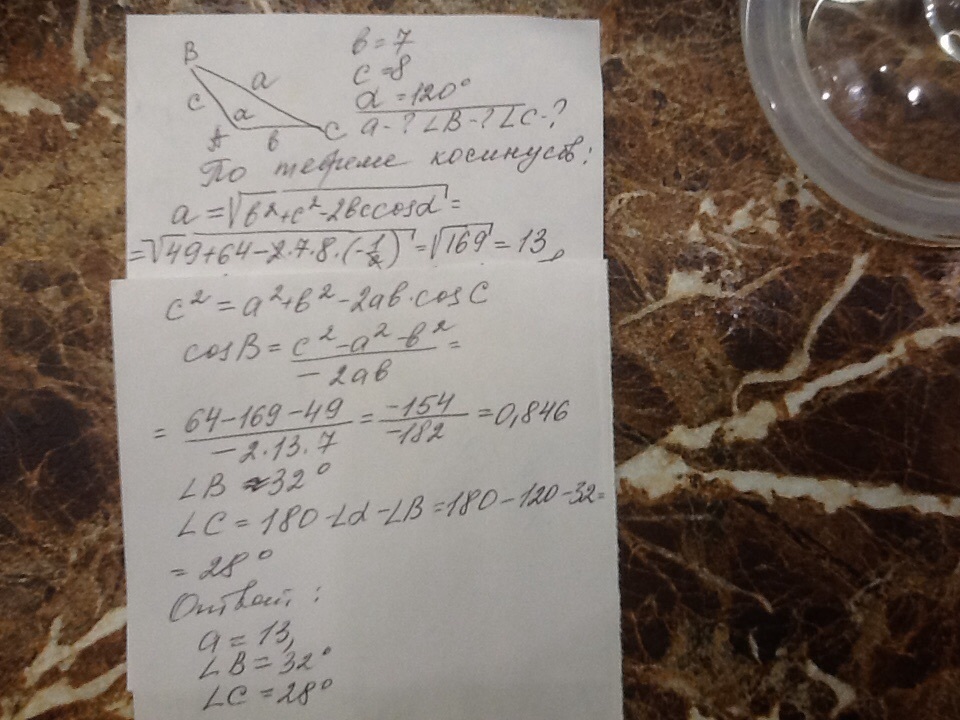 B
a
c
α
A
в
C
в=7
c=8
α=120°
a-? ∠B-? ∠C-?
По теореме косинусов:
a=√в²+c²-2вccosα=
=√49+64-2·7·8·(-1/2)=√169=13,
c²=a²+в²-2aв·cosC
cosB=c²-a²-в²/-2aв=
=64-169-49/-2·13·7=-154/-182=0,846
∠B≈32°
∠C=180-∠α-∠B=180-120-32=
=28°
Ответ:
a=13,
∠B=32°
∠C=28°